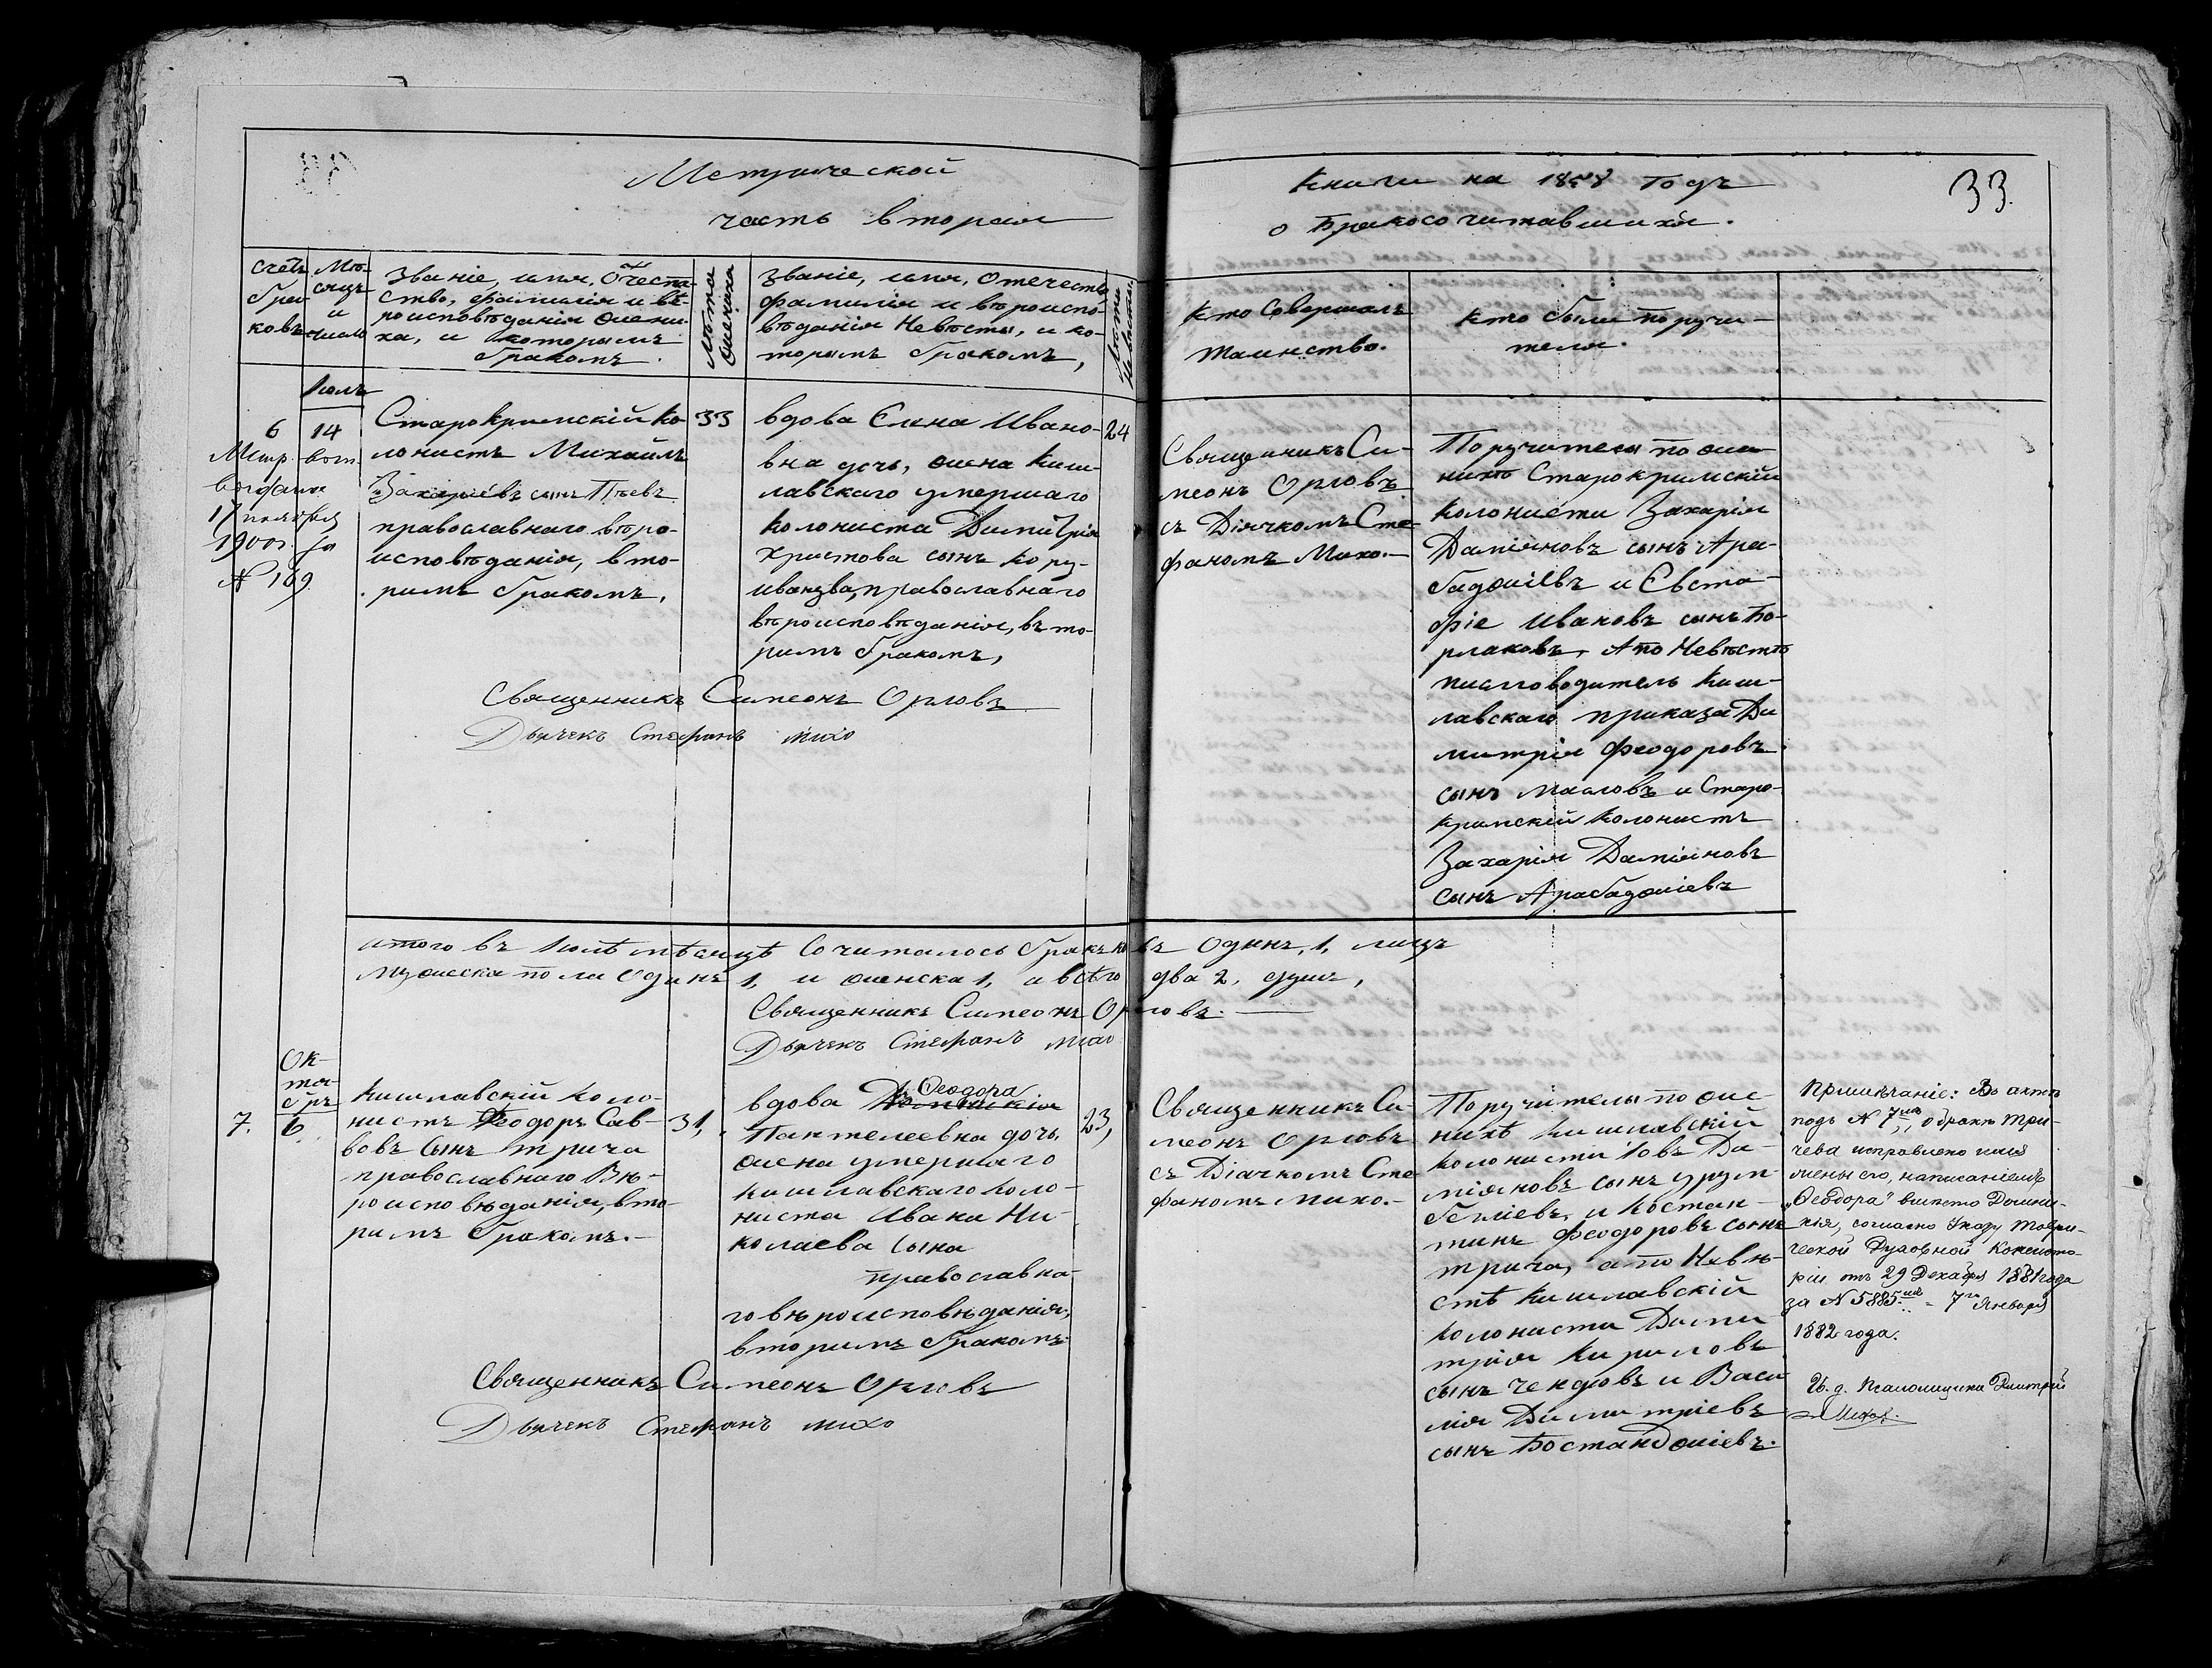 Метрической
часть вторая
Книги на 1858 годъ
33.
о бракосочитавшихся.
Счетъ
бра-
ковъ
Мѣ-
сяцъ
и
число
Званіе, имя, Отчест-
ство, фамилія и вѣ-
роисповѣданія жени-
ха, и которымъ
бракомъ.
Лѣта
жениха
Званіе, имя, Отечество
фамилія и вѣроиспо-
вѣданія Невѣсты, и ко-
торымъ бракомъ,
Лѣта
невѣсты
Кто Совершалъ
таинство.
Кто были поручи-
тели.
Іюль
6
Метр.
выдана
17 ноября
1900 г. за
№ 169
14
Старокримскій ко-
лонистъ Михаилъ
Захаріевъ сынъ Пѣевъ
православнаго вѣро-
исповѣданія, вто-
римъ бракомъ,
33
вдова Елена Ивано-
вна дочь, жена Киш-
лавскаго умершаго
колониста Димитрія
Христова сынъ Кору-
иванзва, православнаго
вѣроисповѣданія, вто-
римъ бракомъ,
24
Священникъ Си-
меонъ Орловъ
съ Діячкомъ Сте-
фаномъ Михо.
Поручители по же-
нихѣ Старокримскій
колонисти Захарія
Даміяновъ сынъ Ара-
баджіевъ и Евста-
фіе Ивановъ сынъ Бо-
рлаковъ, А по Невѣстѣ
писмоводитель Киш-
лавскаго приказа Ди
митрія Феодоровъ
сынъ Масловъ и Старо-
кримскій колонистъ
Захарія Даміяновъ
сынъ Арабаджіевъ
Священникъ Симеонъ Орловъ
Дьячекъ Стефанъ Михо
итого въ Іюлѣ мѣсяцѣ Сочиталось браковъ Одинъ, 1, лицъ
мужеска пола Одинъ 1, и женска 1, а всѣго два 2, душъ,
Священникъ Симеонъ Орловъ.
Дьячекъ Стефанъ Михо
Ок-
тя-
брь
7.
6
Кишлавскій коло-
нистъ Феодоръ Сав-
вовъ Сынъ Трича
православнаго Вѣ-
роисповѣданія, вто-
римъ бракомъ.
31,
Ѳеодора
вдова Доминикія
Пантелеевна дочь,
жена умершаго
кишлавскаго коло-
ниста Ивана Ни-
колаева Сына
православна-
го вѣроисповѣданія,
вторимъ бракомъ
23,
Священникъ Си-
меонъ Орловъ
съ Діачкомъ Сте
фаномъ Михо.
Поручители по же-
нихѣ Кишлавскій
колонисти Іовъ Да-
міяновъ сынъ Урум-
беліевъ, и Костан-
тинъ Феодоровъ сынъ
Трича, а по Невѣ-
стѣ Кишлавскій
колонисти Дими
трія Кириловъ
сынъ Чендовъ и Васи
лія Димитріевъ
сынъ Бостанджіевъ.
Примѣчаніе: Въ актѣ
подъ № 7мъ, о бракѣ Три-
чева исправлено имя
жены его, написаніемъ
„Ѳеодора" вмѣсто Домни-
кія, согласно Указу Таври-
ческой Духовной Консисто-
ріи отъ 29 Декабря 1881 года
за № 5885мъ = 7го Января
1882 года.
И. д. Псаломщика Дмитрій
Михо.
Священникъ Симеонъ Орловъ
Дьячекъ Стефанъ Михо